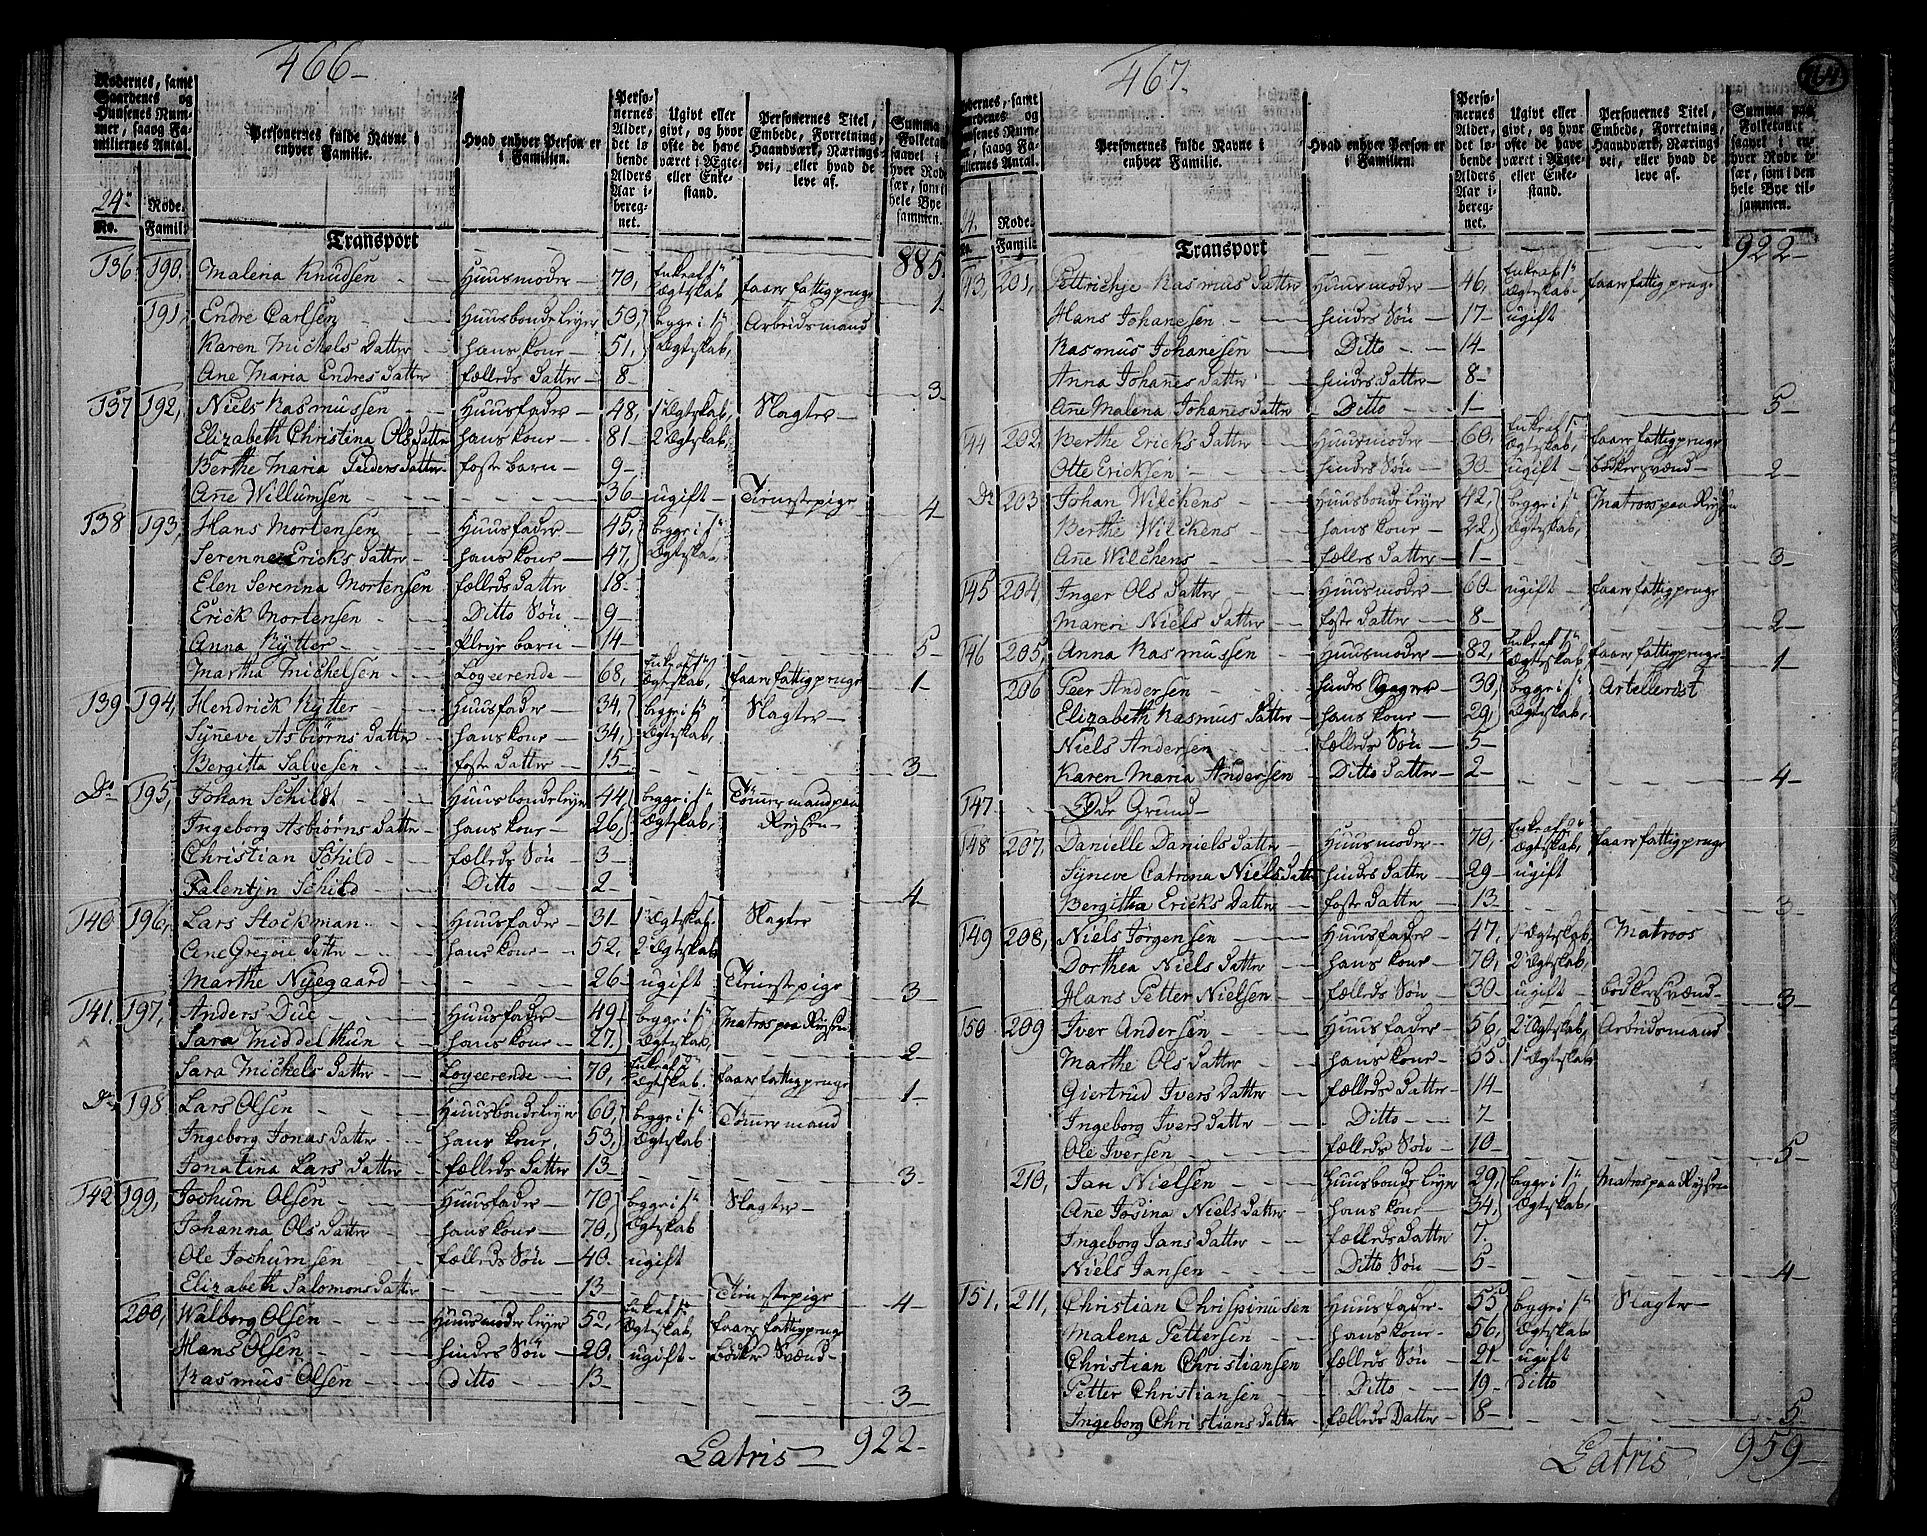 466-
Rodernes, samt Gaardenes og Huusenes Nummer, saaog Familiernes Antal.
Personernes fulde Navne i enhver Familie.
Hvad enhver Person er i Familien.
Personernes Alder, det løbende Alders Aar iberegnet.
Ugivt eller givt, og hvor ofte de have været i Ægte- eller Enkestand.
Personernes Titel, Embede, Forretning, Haandværk, Næringsvei, eller hvad de leve af.
Summa paa Folketallet saavel i enhver Rode især, som i den hele Bye tilsammen.
24de Rode.
No. Famil:
Transport 885.
136 190. Malena Knudsen Huusmoder 70, Enke af 1ste Ægtskab faaer fattigpenge 1
191, Endre Carlsen Huusbonde leyer 50, begge i 1ste Arbeidsmand
Karen Michels Datter hans kone 51, Ægtskab,
Ane Maria Endres Datter fælleds Datter 8 3
137 192, Niels Rasmussen Huusfader 48, 1ste Ægtskab, Slagter
Elizabeth Christina Ols Datter hans kone 81 2det Ægtskab,
Berthe Maria Peders Datter foster barn 9
Ane Willumsen 36 ugift Tienestepige 4
138 193, Hans Mortensen Huusfader 45, begge i 1ste
Serenne Ericks Datter hans kone 47, Ægtskab
Elen Serenna Mortensen fælleds Datter 18
Erick Mortensen Ditto Søn 9
Anna Rytter Pleye barn 14 5
Martha Michelsen Logeerende 68, Enke af Ægtskab, faaer fattigpenge 1
139 194, Hendrick Rytter Huusfader 34, begge i 1ste Slagter
Synneve Asbiørns Datter hans kone 34, Ægtskab,
Bergitta Salvesen foster Datter 15 3
Do 195, Johan Schildt Huusbonde leyer 44, begge i 1ste Tømmermand paa
Ingeborg Asbiørns Datter hans kone 26, Ægtskab, Reysen
Christian Schild fælleds Søn 3
Falentjn Schild Ditto 2 4
140 196, Lars Stockman Huusfader 31 1ste Ægtskab, Slagter
Ane Gregorie Datter hans kone 52, 2det Ægtskab
Marthe Nyegaard 26 ugift Tienestepige 3
141. 197, Anders Due Huusfader 49 begge i 1ste Matros paa Reysen
Sara Middelthun hans kone 27, Ægtskab, 2
Sara Michels Datter Logeerende 70, Enke af Ægtskab. faaer fattigpenge 1
Do 198 Lars Olsen Huusbonde leyer 60, begge i 1ste Tømmermand
Ingeborg Jonas Datter hans kone, 53, Ægtskab
Jonatina Lars Datter fælleds Datter 13 3
142 199, Jochum Olsen Huusfader 70 begge i 1ste Slagter
Johanna Ols Datter hans kone 70, Ægtskab
Ole Jochumsen fælleds Søn 40. ugift
Elizabeth Salomons Datter 13 Tienestepige 4
200, Walborg Olsen Huusmoder leyer 52, Enke af 1ste Ægtskab, faaer fattigpenge
Hans Olsen hindes Søn 20. ugift Bødker Svend
Rasmus Olsen Ditto 13 3
Latris 922-
467.
Rodernes, samt Gaardenes og Huusenes Nummer, saaog Familiernes Antal.
Personernes fulde Navne i enhver Familie.
Hvad enhver Person er i Familien.
Personernes Alder, det løbende Alders Aar iberegnet.
Ugivt eller givt, og hvor ofte de have været i Ægte- eller Enkestand.
Personernes Titel, Embede, Forretning, Haandværk, Næringsvei, eller hvad de leve af.
Summa paa Folketallet saavel i enhver Rode især, som i den hele Bye tilsammen.
24. Rode.
No. Famil:
Transport 922-
143, 201, Pettrichje Rasmus Datter Huusmoder 46, Enke af 1ste Ægtskab faaer fattigpenge
Hans Johanesen hindes Søn 17 ugift
Rasmus Johanesen Ditto 14
Anna Johanes Datter hindes Datter 8
Ane Malena Johanes Datter Ditto 1 5
144 202, Berthe Ericks Datter Huusmoder 60, Enke af 1ste Ægtskab, faaer fattigpenge
Otte Ericksen hindes Søn 30 ugift bødkersvænd 2
Do 203 Johan Wilchens Huusbonde leyer 42, begge i 1ste Matroos paa Reysen
Berthe Wilchens hans kone 22 Ægtskab,
Ane Wilchens fælleds Datter 1 3
145 204, Inger Ols Datter Huusmoder 60 ugift faaer fattigpenge
Mareri Niels Datter foster Datter 8 2
146 205, Anna Rasmussen Huusmoder 82, Enke af 1ste Ægtskab, faaer fattigpenge 1
206 Peer Andersen 30, begge i 1ste Artellerist
Elizabeth Rasmus Datter hans kone 29, Ægtskab,
Niels Andersen fælleds Søn 5
Karen Maria Andersen Ditto Datter 2 4
147 Øde Grund
148 207, Danielle Daniels Datter Huusmoder 70, Enke af Ægtskab, faaer fattigpenge
Synneve Catrina Niels Datter hindes Datter 29 ugift
Bergitha Ericks Datter foster Datter 13 3
149 208, Niels Jørgensen Huusfader 47, 1ste Ægtskab, Matroos
Dorthea Niels Datter hans kone 70, 2det Ægtskab,
Hans Petter Nielsen fælleds Søn 30 ugift bødkersvænd 3
150 209 Iver Andersen Huusfader 56, 2det Ægtskab, Arbeidsmand
Marthe Ols Datter hans kone 55 1ste Ægtskab
Giertrud Ivers Datter fælleds Datter 14
Ingeborg Ivers Datter Ditto 7
Ole Iversen fælleds Søn 10 5
210, Jan Nielsen Huusbonde leyer 29, begge i 1ste Matros paa Reysen
Ane Josina Niels Datter hans kone 34, Ægtskab,
Ingeborg Jans Datter fælleds Datter 7.
Niels Jansen Ditto Søn 5 4
151, 211, Christian Chrispinusen Huusfader 55 begge i 1ste Slagter
Malena Pettersen hans kone 56, Ægtskab
Christian Christiansen fælleds Søn 21 ugift
Petter Christiansen Ditto 19 Ditto
Ingeborg Christians Datter fælleds Datter 8 5
Latris 959-